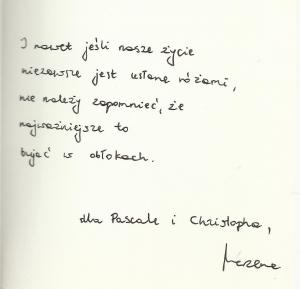 I nawet jeśli nasze życie
niezawsze jest usłane różami,
nie należy zapomnieć, że
najważniejsze to
bujać w obłokach.
dla Pascale i Christopha,